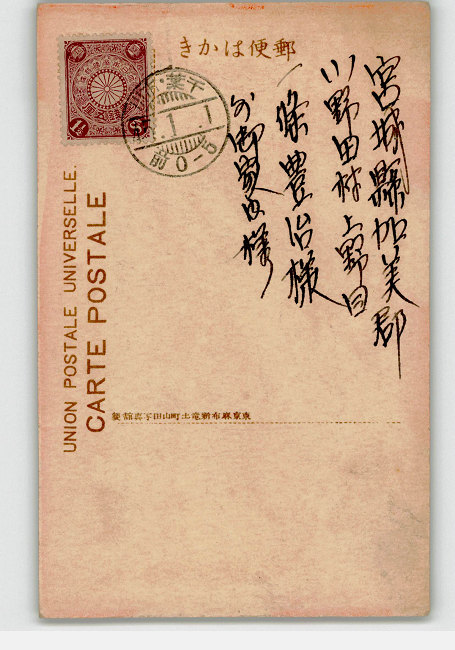 郵便はかき
宮城縣加美郡
小野田村上野目
一條豊治様
外御家内様
UNION POSTALE UNIVERSELLE.
CARTE POSTALE
千葉
東京麻布新竜土町山田写真館製